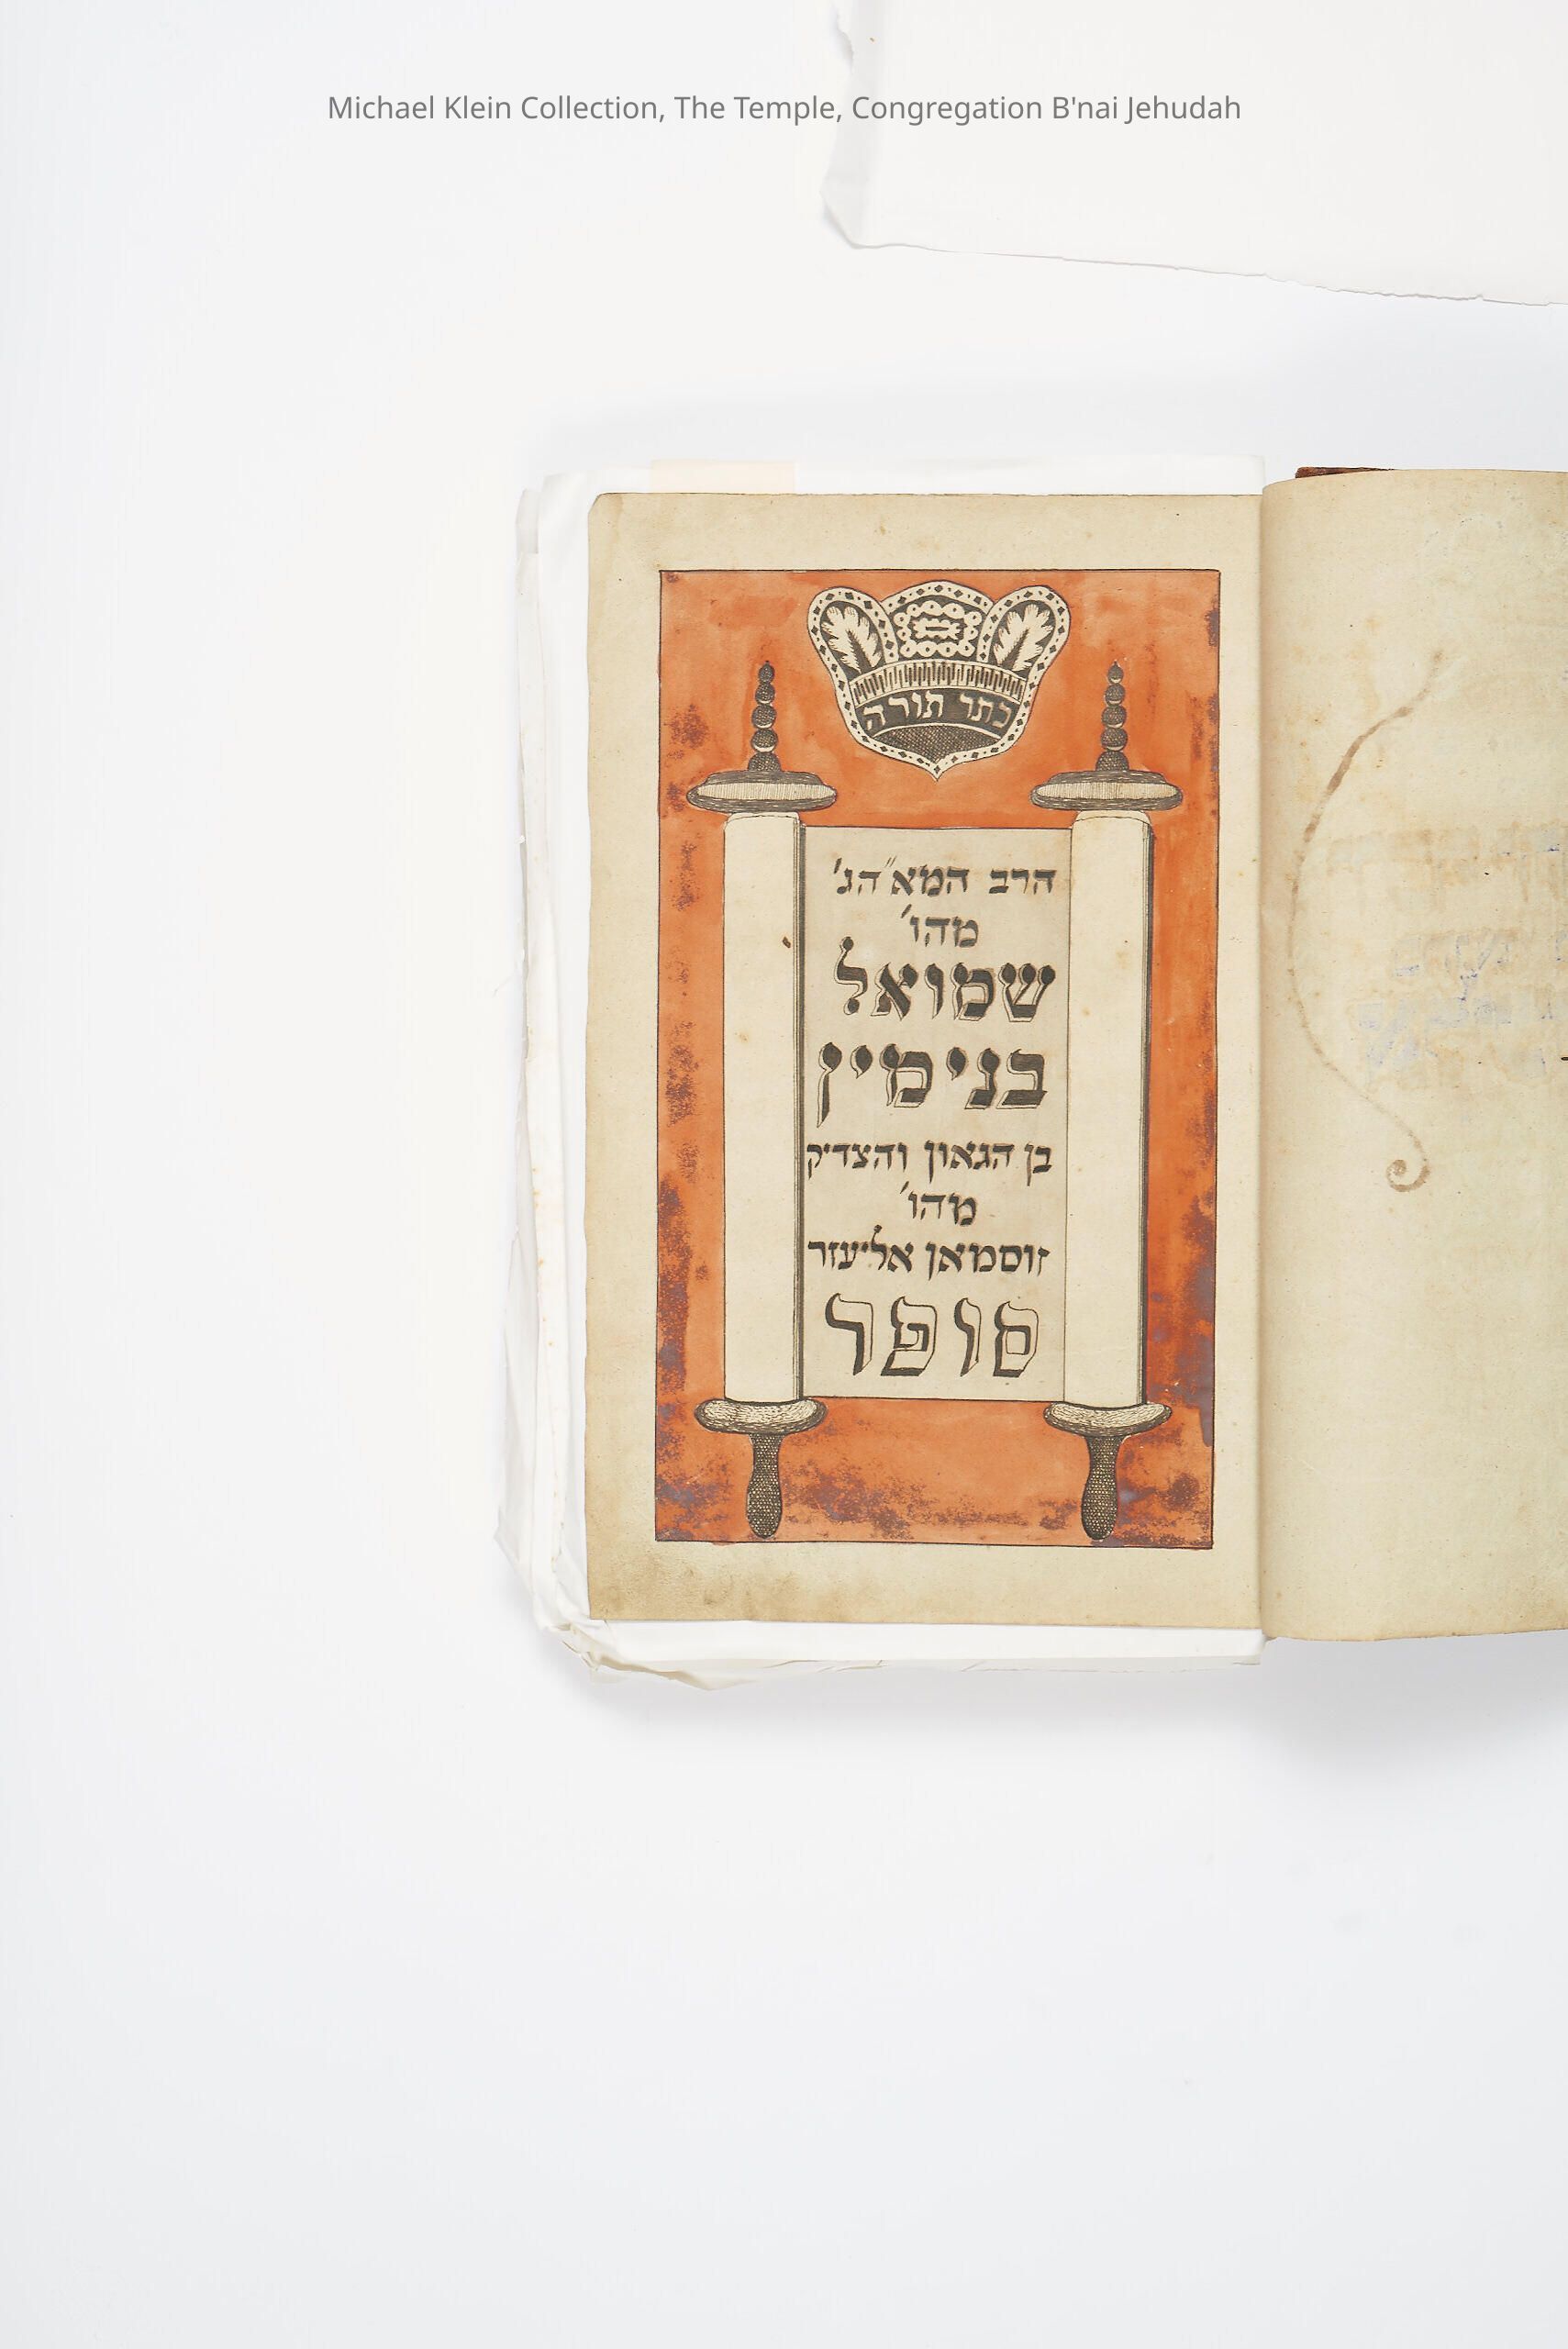 Michael Klein Collection, The Temple, Congregation B'nai Jehudah
כתר תורה
הרב המא״הג׳
מהו׳
שמואל
בנימין
בן הגאון והצדיק
מהו׳
זוסמאן אליעזר
סופר